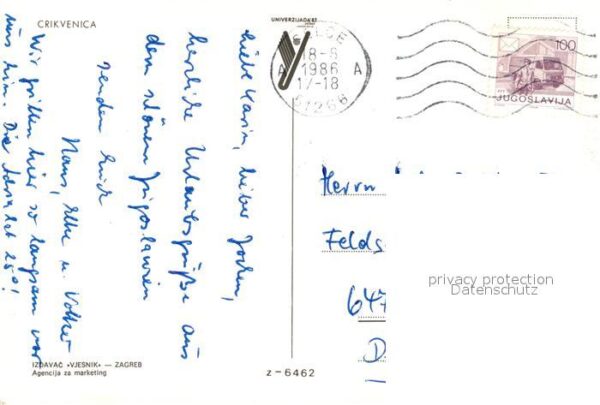 CRIKVENICA
UNIVERZIJADA 87
18-8
1986
A A
17-18
51266
100
JUGOSLAVIJA
Liebe Karin, lieber Jochen,
herzliche Urlaubsgrüße aus
dem schönen Jugoslawien
senden Euch
Hans, Elke u. Volker
Wir grillen hier so langsam vor
uns hin. Die Adria hat 25°!
Herrn
Felds
647
D
privacy protection
Datenschutz
IZDAVAČ »VJESNIK« — ZAGREB
Agencija za marketing
z-6462